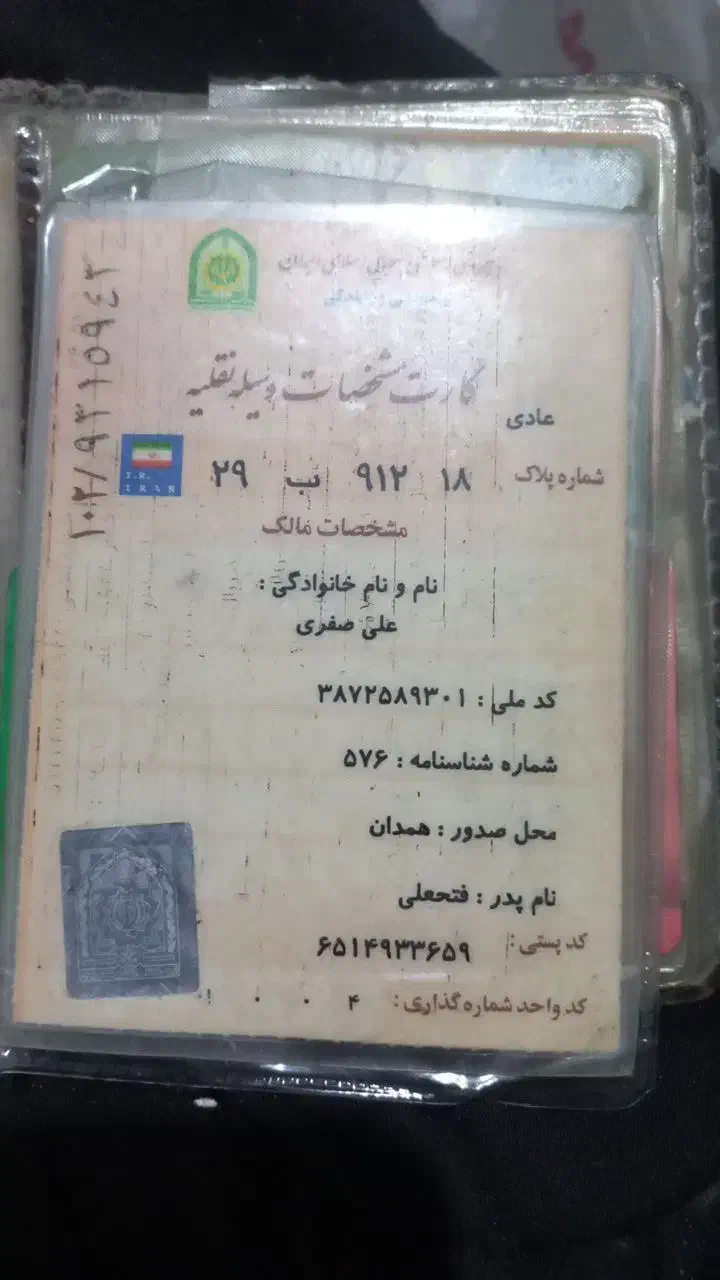 کارت مشخصات وسیله نقلیه
عادی
شماره پلاک ۱۸ ۹۱۲ ب ۲۹
I.R.
IRAN
مشخصات مالک
نام و نام خانوادگی :
علی صفری
کد ملی : ۳۸۷۲۵۸۹۳۰۱
شماره شناسنامه : ۵۷۶
محل صدور : همدان
نام پدر : فتحعلی
کد پستی : ۶۵۱۴۹۳۳۶۵۹
کد واحد شماره گذاری :
۱۰۲/۹۳۱۵۹۴۳